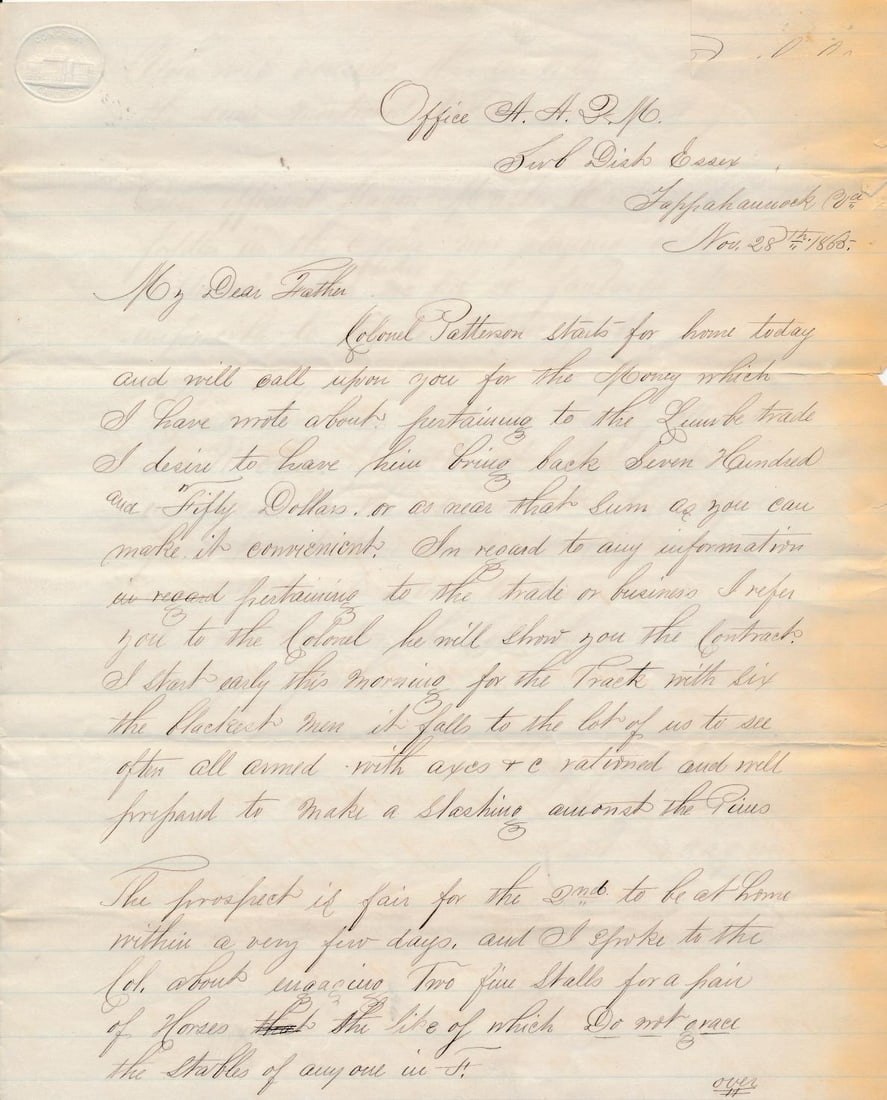 CONGRESS
Office A. A. Q. M.
Sub Dist Essex
Tappahannock Va
Nov. 28th 1865.
My Dear Father
Colonel Patterson starts for home today
and will call upon you for the Money which
I have wrote about. pertaining to the Lumbe trade
I desire to have him bring back Seven Hundred
and Fifty Dollars. or as near that Sum as you can
make it convienient. In regard to any information
in regard pertaining to the trade or business I refer
you to the Colonel he will show you the Contract.
I start early this morning for the Track with six
the blackest men it falls to the lot of us to see
often all armed with axes & c rationed and well
prepared to make a slashing amonst the Pines
The prospect is fair for the 2nd to be at home
within a very few days. and I spoke to the
Col. about engaging Two fine Stalls for a pair
of Horses that the like of which Do not grace
the stables of any one in F.
over